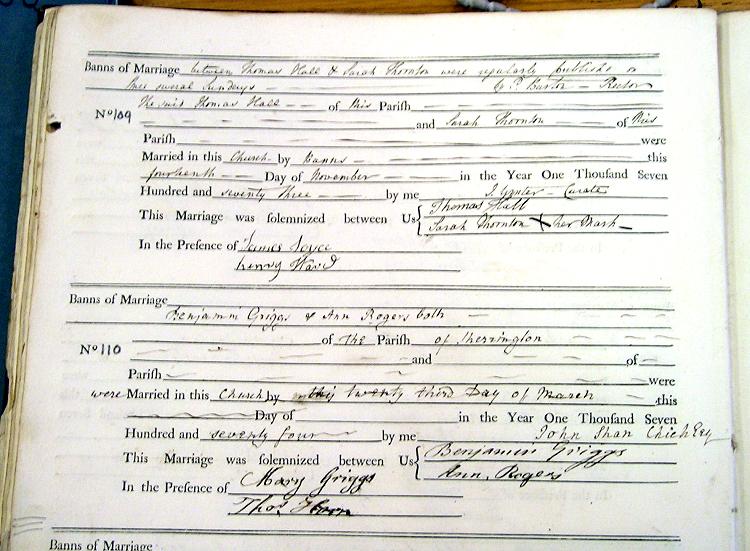 Banns of Marriage between Thomas Hall & Sarah Thornton were regularly publishd on
three several Sundays by P. Barton Rector
The said Thomas Hall of this Parish
No 109
and Sarah Thornton of this
Parish were
Married in this Church by Banns this
fourteenth Day of November in the Year One Thousand Seven
Hundred and seventy three by me J. Curate
This Marriage was solemnized between Us Thomas Hall
Sarah Thornton X her Mark
In the Presence of James Joyce
henry Ward
Banns of Marriage
Benjamin Griggs & Ann Rogers both
of the Parish of Sherrington
No 110
and of
Parish were
were Married in this Church by this twenty third Day of March this
Day of in the Year One Thousand Seven
Hundred and seventy four by me John Shan
This Marriage was solemnized between Us Benjamin Griggs
Ann Rogers
In the Presence of Mary Griggs
Thos
Banns of Marriage